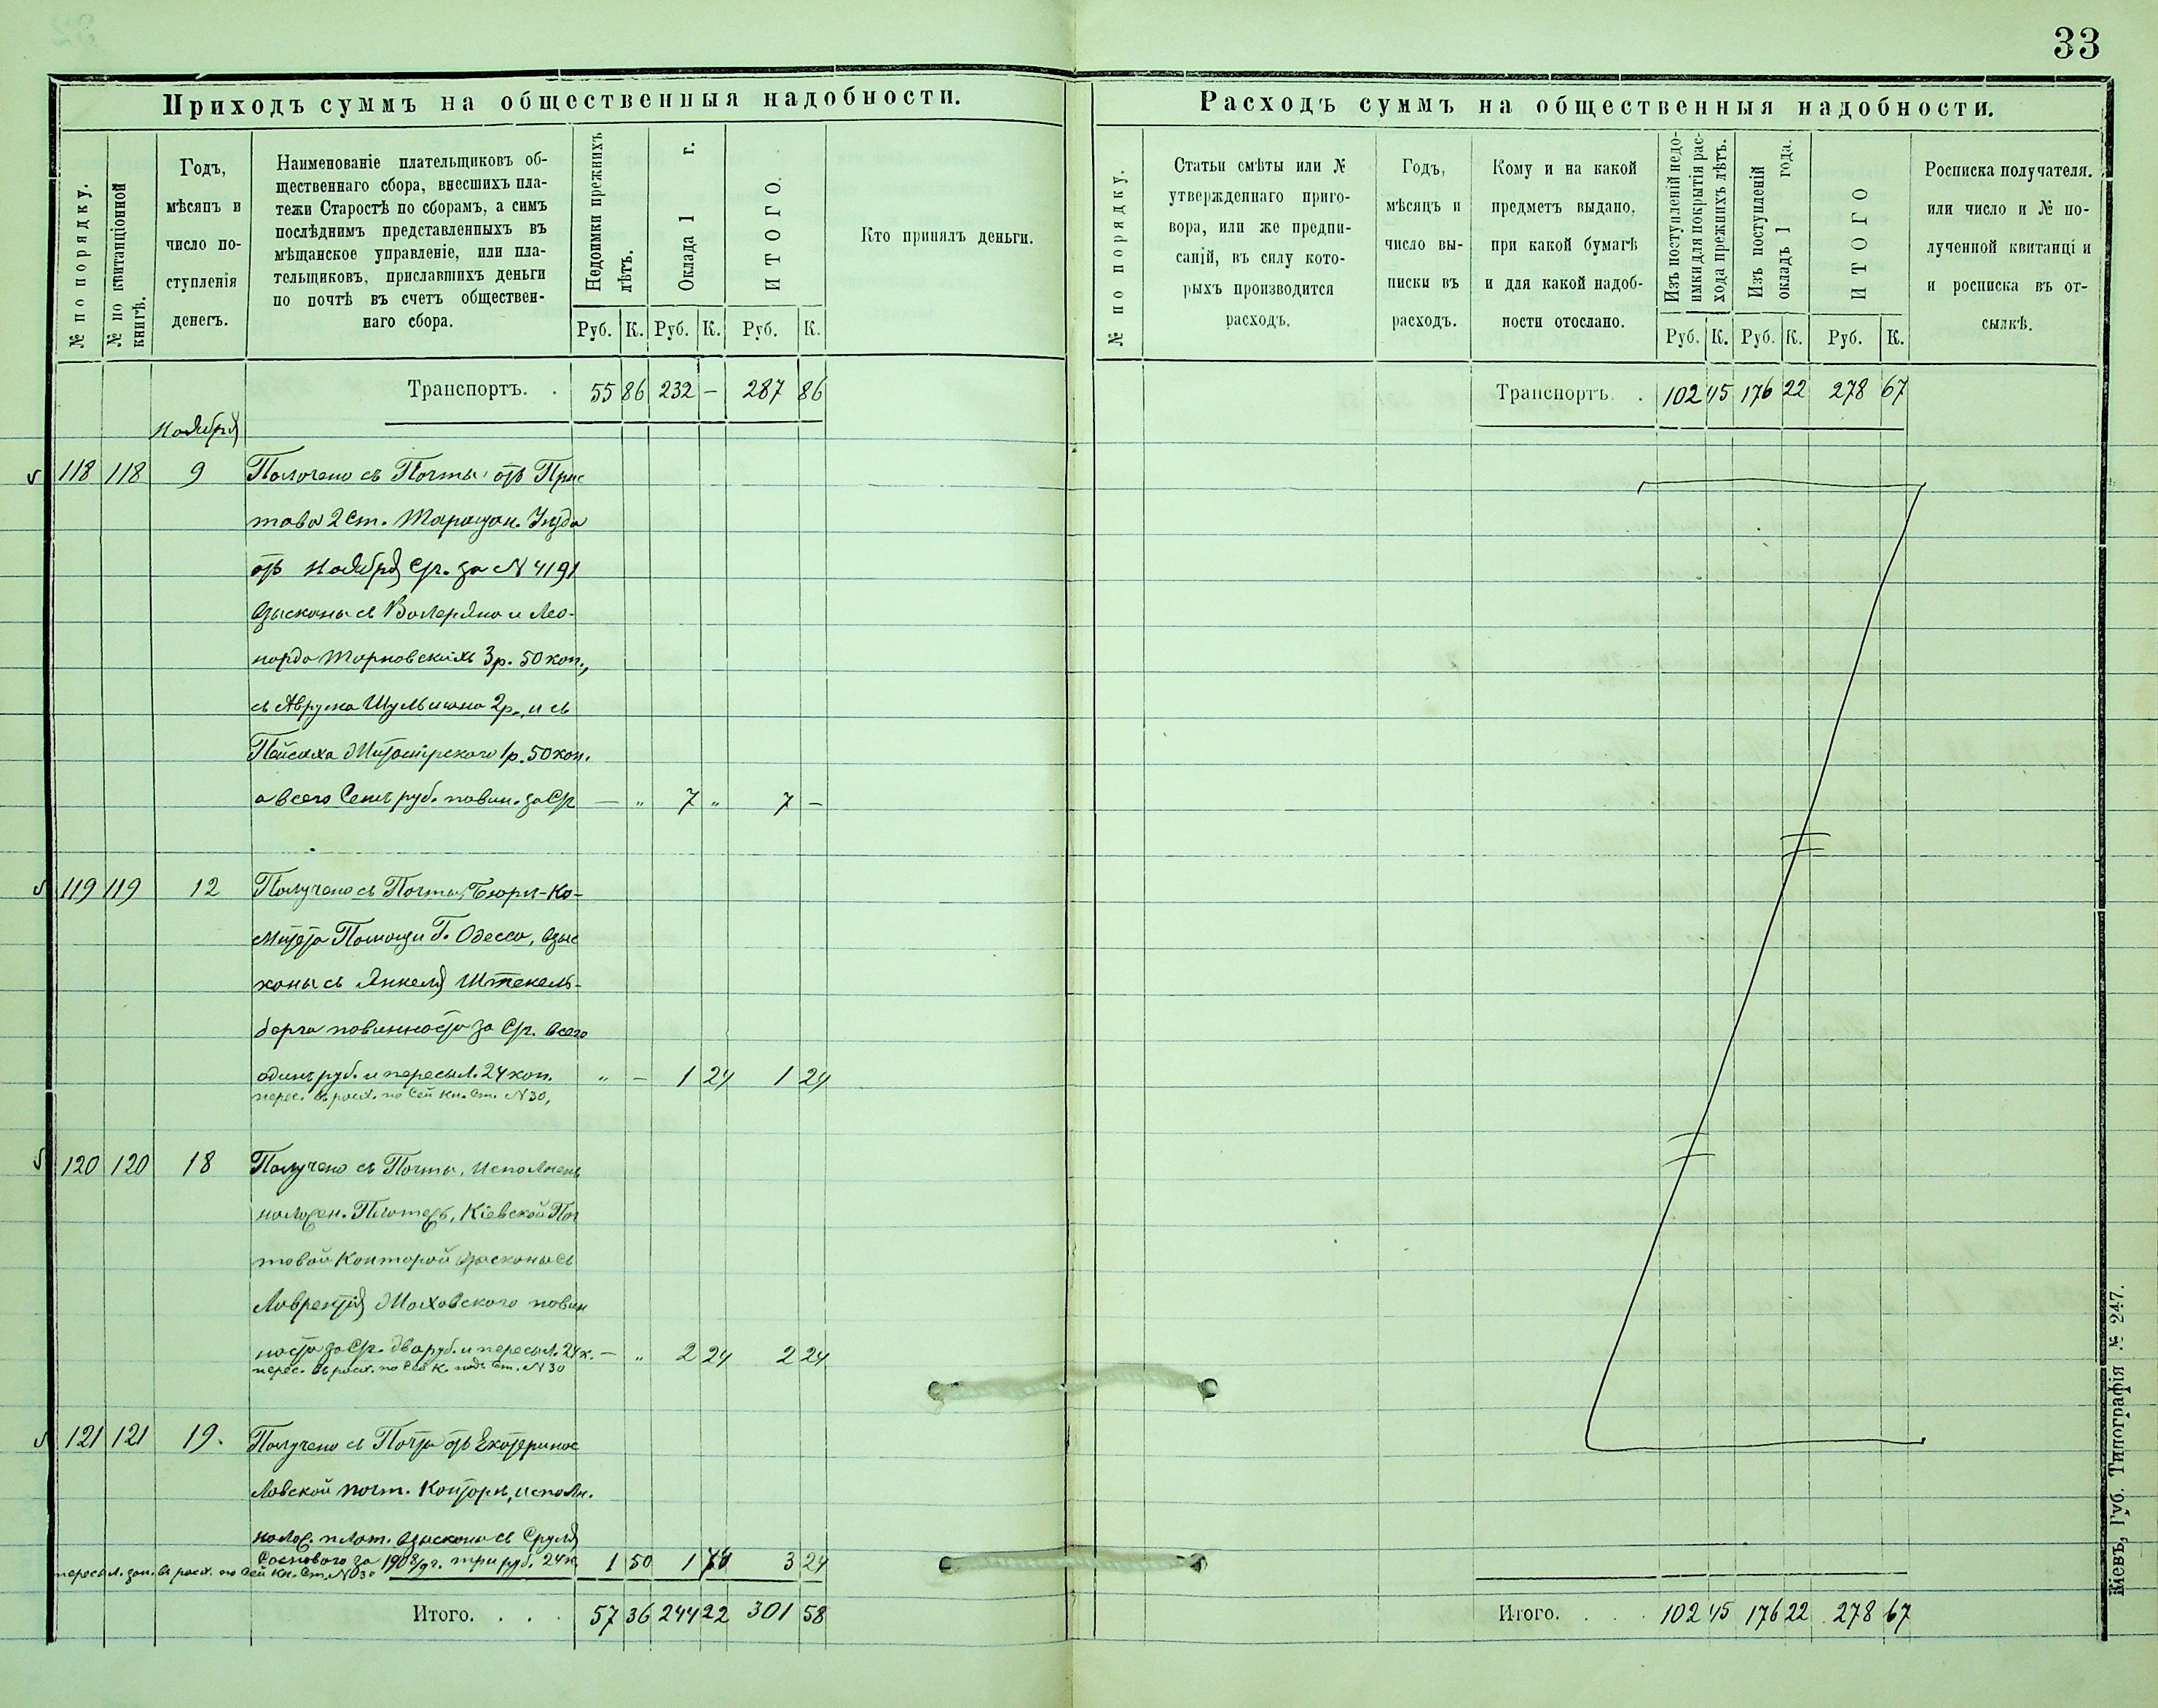 33
Приходъ суммъ на общественныя надобности.
№ по порядку.
№ по квитанціонной книгѣ.
Годъ,
мѣсяцъ и
число по-
ступленія
денегъ.
Наименованіе плательщиковъ об-
щественнаго сбора, внесшихъ пла-
тежи Старостѣ по сборамъ, а симъ
послѣднимъ представленныхъ въ
мѣщанское управленіе, или пла-
тельщиковъ, приславшихъ деньги
по почтѣ въ счетъ обществен-
наго сбора.
Недоимки прежнихъ лѣтъ.
Оклада 1 г.
ИТОГО.
Руб. К. Руб. К. Руб. К.
Кто принялъ деньги.
Транспортъ. . 55 86 232 — 287 86
Ноября
118 118 9 Получено съ Почты отъ Прис
тава 2 Ст. Таращан. Уезда
отъ Ноября с/г. за № 4191
Взысканы съ Валерьяна и Лео-
нарда Тарновскихъ 3 р. 50 коп.,
съ Аврума Шульмана 2 р., и съ
Пейсаха Житомірскаго 1 р. 50 коп.
а всего Семь руб. повин. за с/г — „ 7 „ 7 —
119 119 12 Получено съ Почты, Бюри-Ко-
митета Помощи Г. Одесса, взыс
каны съ Янкеля Штекель-
берга повинность за с/г. всего
одинъ руб. и пересыл. 24 коп. „ — 1 24 1 24
перес. въ расх. по сей кн. ст. № 30,
120 120 18 Получено съ Почты, Исполнень
налож. Платеж, Кіевской Поч
товой Конторой взысканы съ
Лаврентія Маховскаго повин
ность за с/г. два руб. и пересыл. 24 к. — „ 2 24 2 24
перес. въ расх. по сей к. под ст. № 30
121 121 19. Получено съ Почты отъ Екатеринос
лавской почт. Конторы, исполн.
налож. плат. взысканы съ Сруля
Сосноваго за 1908/9 г. три руб. 24 к. 1 50 1 74 3 24
пересыл. зап. въ расх. по сей кн. ст. № 30
Итого. . . . 57 36 244 22 301 58
Расходъ суммъ на общественныя надобности.
№ по порядку.
Статьи смѣты или №
утвержденнаго приго-
вора, или же предпи-
саній, въ силу кото-
рыхъ производится
расходъ.
Годъ,
мѣсяцъ и
число вы-
писки въ
расходъ.
Кому и на какой
предметъ выдано,
при какой бумагѣ
и для какой надоб-
ности отослано.
Изъ поступленій недо-
имки для покрытія рас-
хода прежнихъ лѣтъ.
Изъ поступленій
окладъ 1 года.
ИТОГО
Руб. К. Руб. К. Руб. К.
Росписка получателя.
или число и № по-
лученной квитанці и
и росписка въ от-
сылкѣ.
Транспортъ. . 102 45 176 22 278 67
Итого. . . . 102 45 176 22 278 67
Кіевъ, Губ. Типографія № 247.